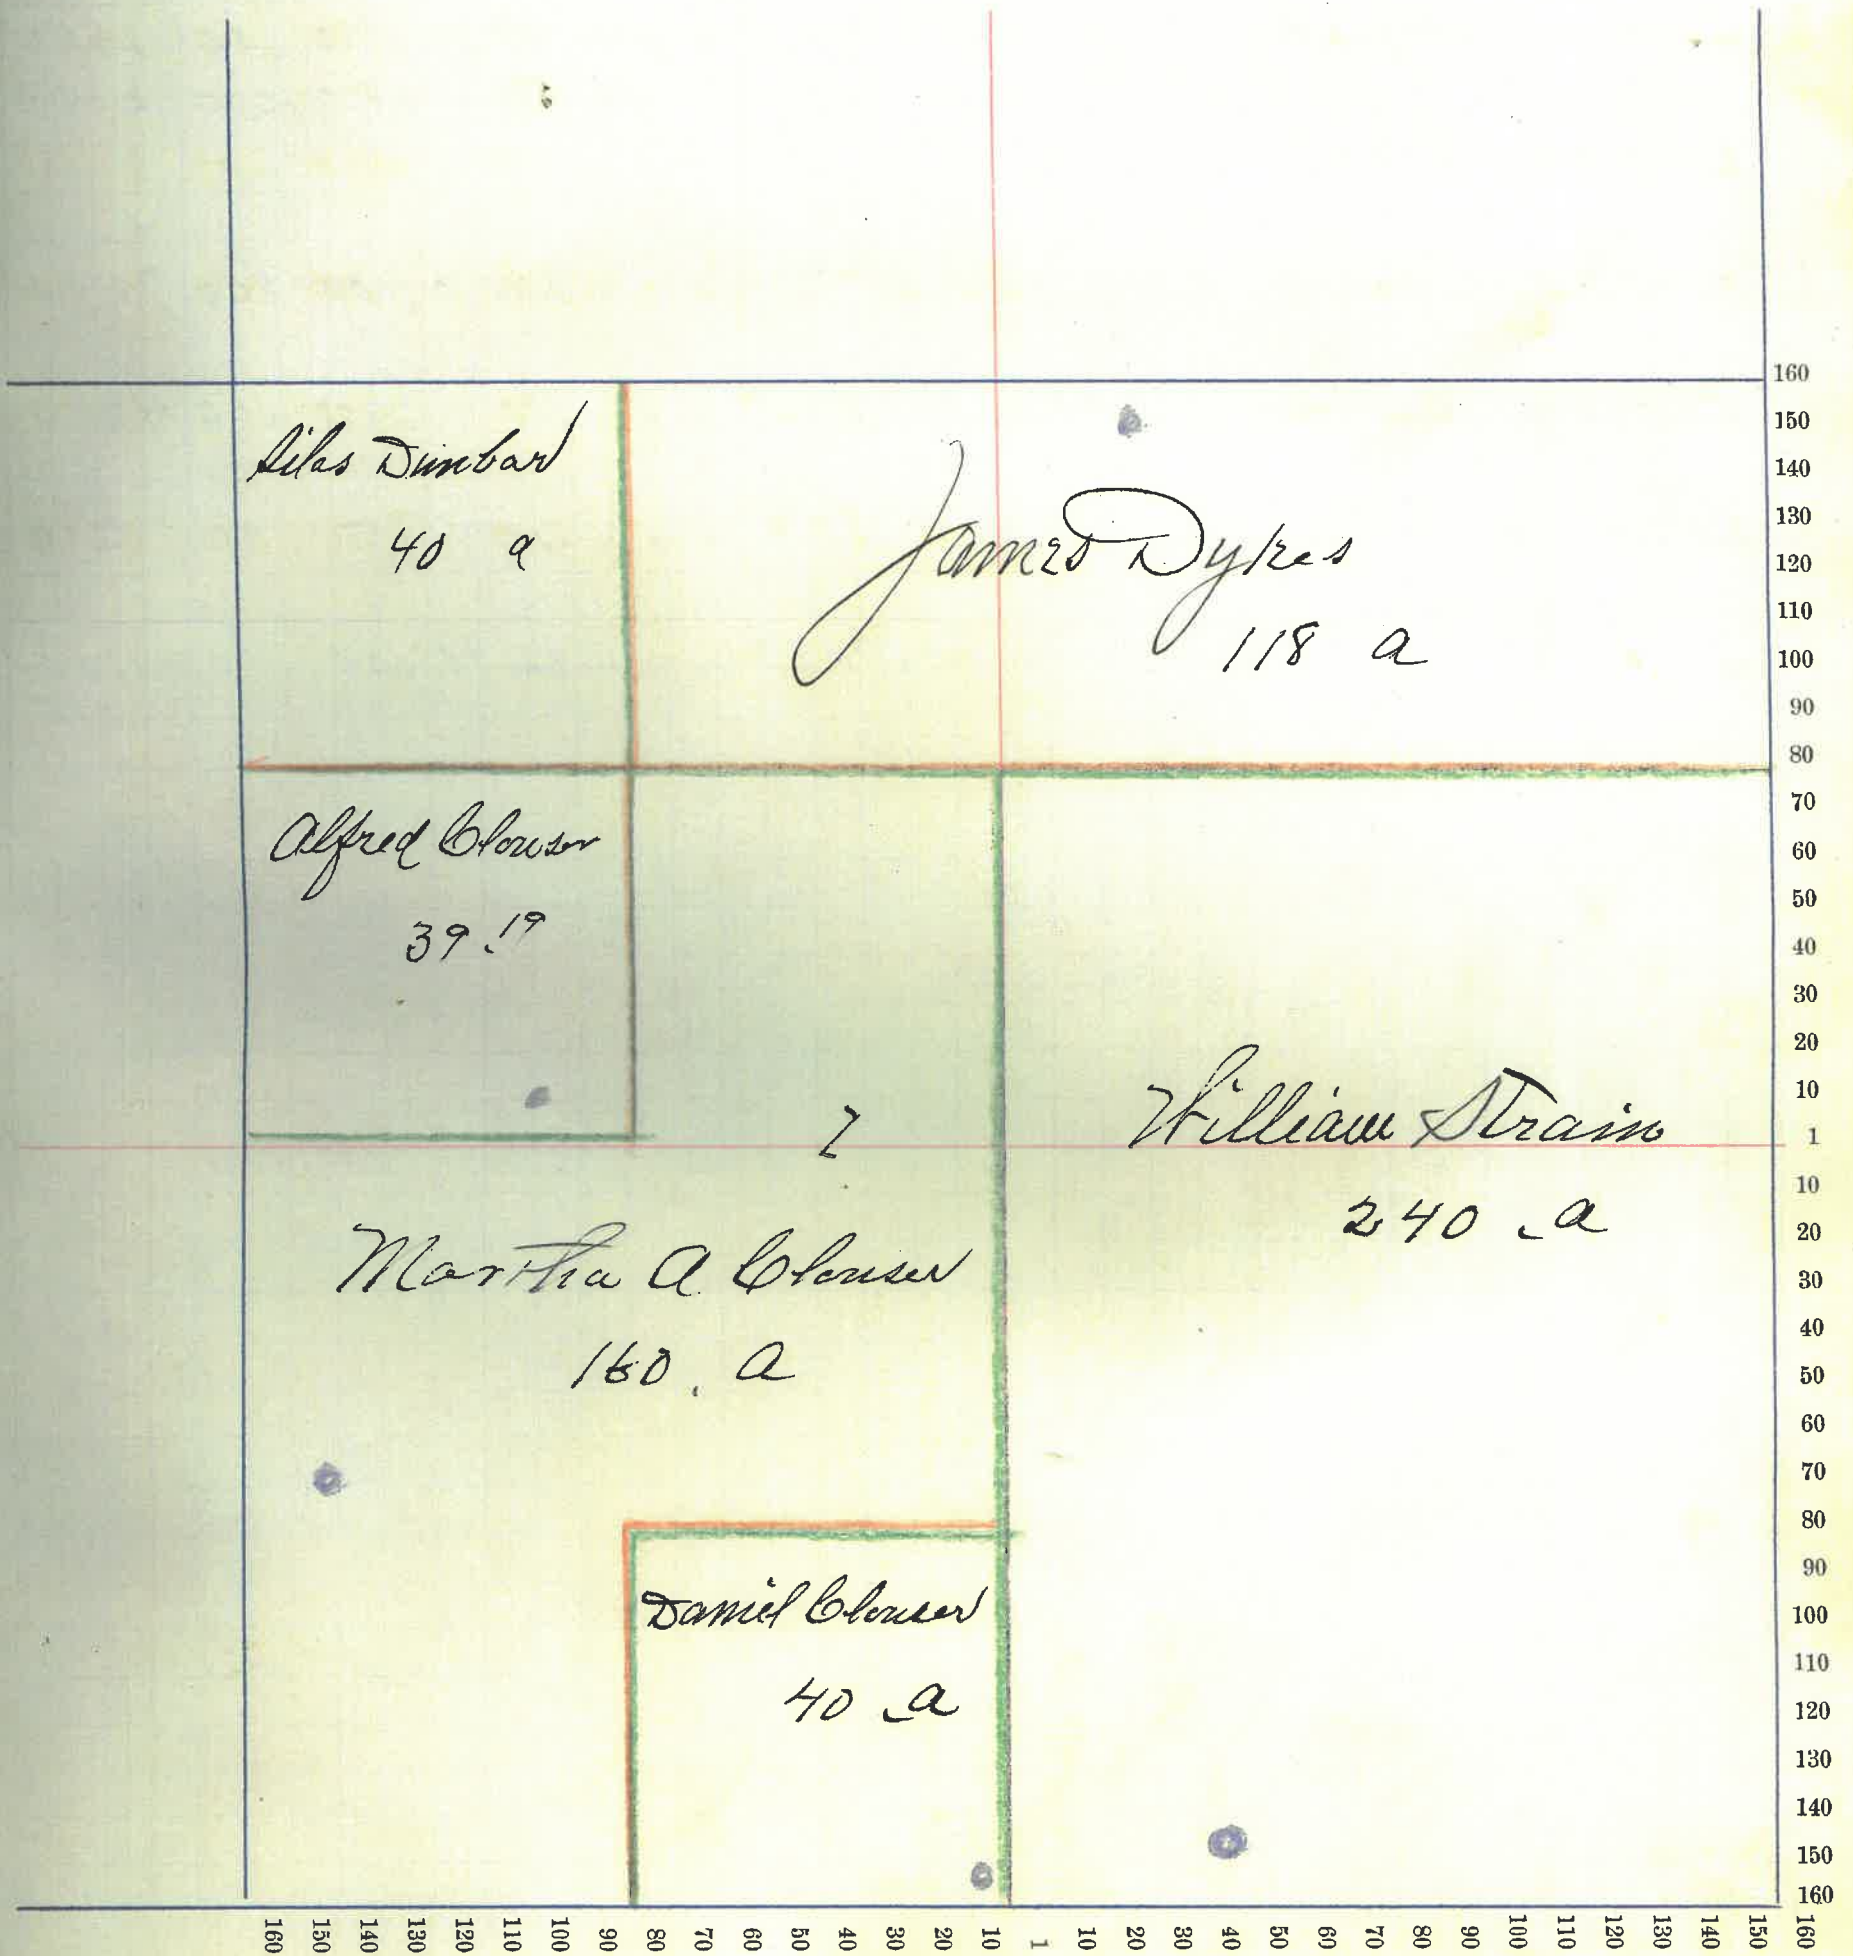 Silas Dunbar
40 a
James Dykes
118 a
Alfred Clouser
39.19
William Strain
240 a
Martha A Clouser
160. a
Daniel Clouser
40 a
160
150
140
130
120
110
100
90
80
70
60
50
40
30
20
10
1
10
20
30
40
50
60
70
80
90
100
110
120
130
140
150
160
160 150 140 130 120 110 100 90 80 70 60 50 40 30 20 10 1 10 20 30 40 50 60 70 80 90 100 110 120 130 140 150 160